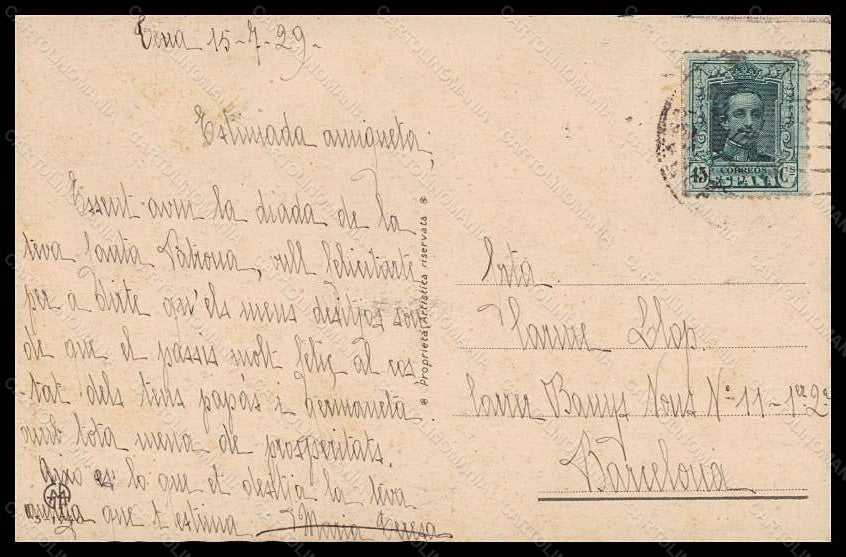 15-7-29.
Estimada amigueta,
Essent avui la diada de la
teva Santa Patrona, vull felicitarte
per a dirte qu'els meus desitjos son
de que el passis molt feliç al cos
-tat dels teus papás i germaneta
amb tota mena de prosperitats.
Aixo es lo que et desitja la teva
amiga que t'estima Maria Teresa
Proprietà Artistica riservata
CORREOS
ESPAÑA
15 Cs
Srta
Carme Llop.
Carrer Banys Nous Nº 11-1er 2ª
Barcelona
CARTOLINOMANIA